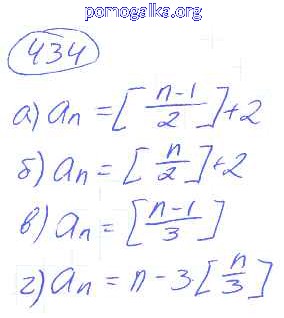 pomogalka.org
434
а) aₙ = [(n-1)/2] + 2
б) aₙ = [n/2] + 2
в) aₙ = [(n-1)/3]
г) aₙ = n - 3·[n/3]